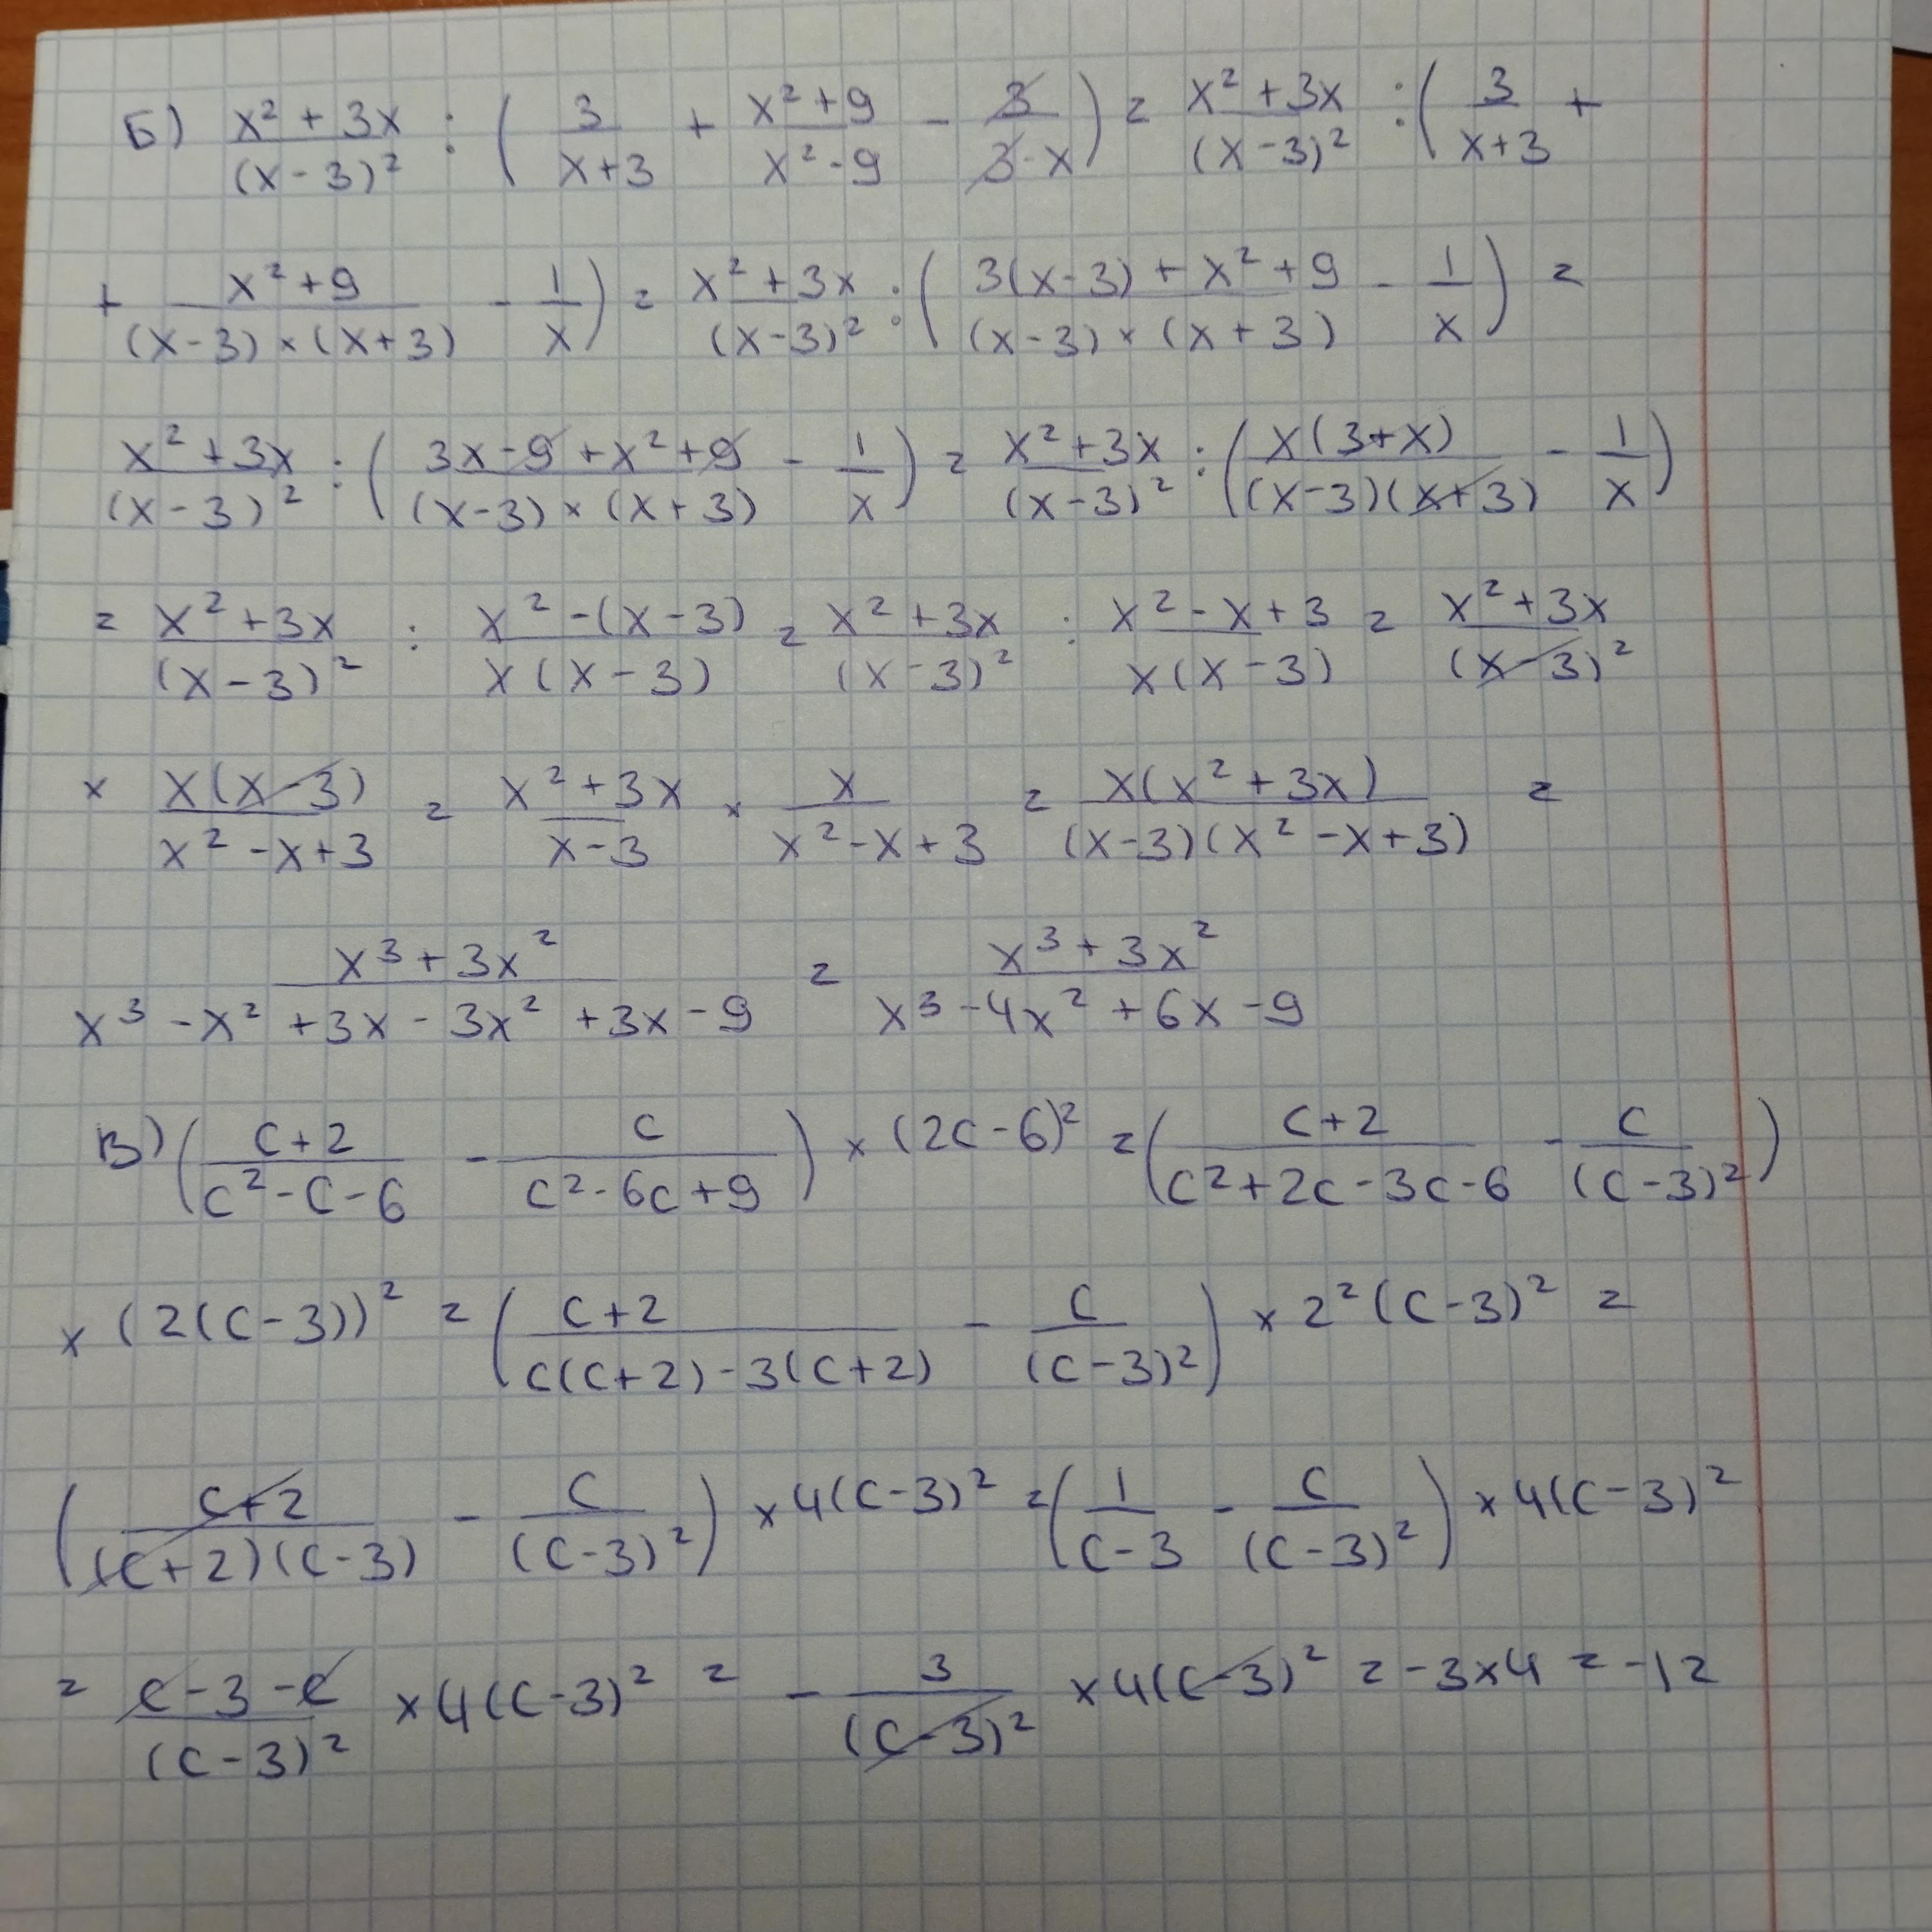 Б) (x² + 3x)/(x - 3)² : (3/(x+3) + (x² + 9)/(x² - 9) - 3/(3 - x)) = (x² + 3x)/(x - 3)² : (3/(x+3) +
+ (x² + 9)/((x - 3) × (x + 3)) - 1/x) = (x² + 3x)/(x - 3)² : ((3(x - 3) + x² + 9)/((x - 3) × (x + 3)) - 1/x) =
(x² + 3x)/(x - 3)² : ((3x - 9 + x² + 9)/((x - 3) × (x + 3)) - 1/x) = (x² + 3x)/(x - 3)² : (x(3 + x)/((x - 3)(x + 3)) - 1/x)
= (x² + 3x)/(x - 3)² : (x² - (x - 3))/(x(x - 3)) = (x² + 3x)/(x - 3)² : (x² - x + 3)/(x(x - 3)) = (x² + 3x)/(x - 3)²
× x(x - 3)/(x² - x + 3) = (x² + 3x)/(x - 3) × x/(x² - x + 3) = x(x² + 3x)/((x - 3)(x² - x + 3)) =
(x³ + 3x²)/(x³ - x² + 3x - 3x² + 3x - 9) = (x³ + 3x²)/(x³ - 4x² + 6x - 9)
В) ((c + 2)/(c² - c - 6) - c/(c² - 6c + 9)) × (2c - 6)² = ((c + 2)/(c² + 2c - 3c - 6) - c/(c - 3)²)
× (2(c - 3))² = ((c + 2)/(c(c + 2) - 3(c + 2)) - c/(c - 3)²) × 2²(c - 3)² =
((c + 2)/((c + 2)(c - 3)) - c/(c - 3)²) × 4(c - 3)² = (1/(c - 3) - c/(c - 3)²) × 4(c - 3)²
= (c - 3 - c)/(c - 3)² × 4(c - 3)² = - 3/(c - 3)² × 4(c - 3)² = -3 × 4 = -12